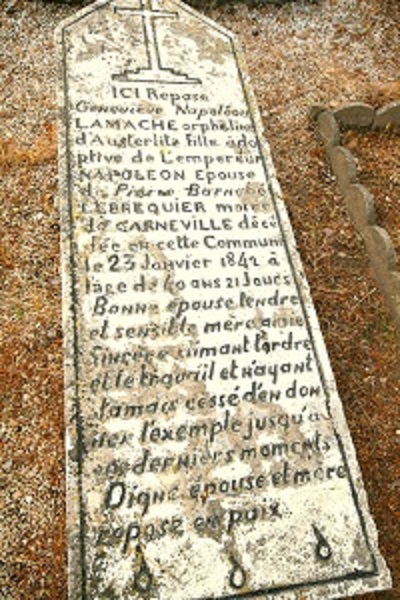 ICI Repose
Geneviève Napoléon
LAMACHE orpheline
d'Austerlitz fille ado
ptive de L'empereur
NAPOLEON Epouse
de Pierre Barnabé
LEBREQUIER maire
de CARNEVILLE décé
dée en cette Commune
le 23 Janvier 1842 à
l'age de 40 ans 21 Jours
Bonne épouse tendre
et sensible mère amie
sincère aimant l'ordre
et le travail et n'ayant
Jamais cessé d'en don
ner l'exemple jusqu'à
ses derniers moments
Digne épouse et mère
repose en paix